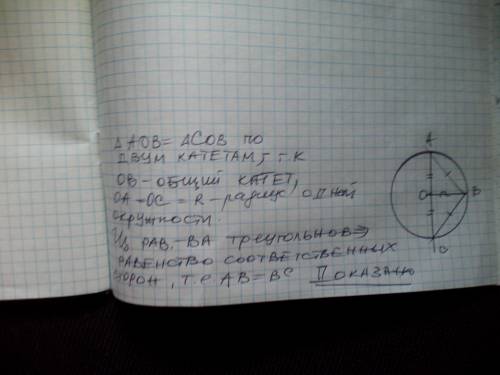 ΔAOB = ΔCOB по
двум катетам, т. к
OB - общий катет,
OA = OC = R - радиус одной
окружности.
Из рав.-ва треугольнов ⇒
равенство соответственных
сторон, т.е AB = BC Показано
A
O
B
C